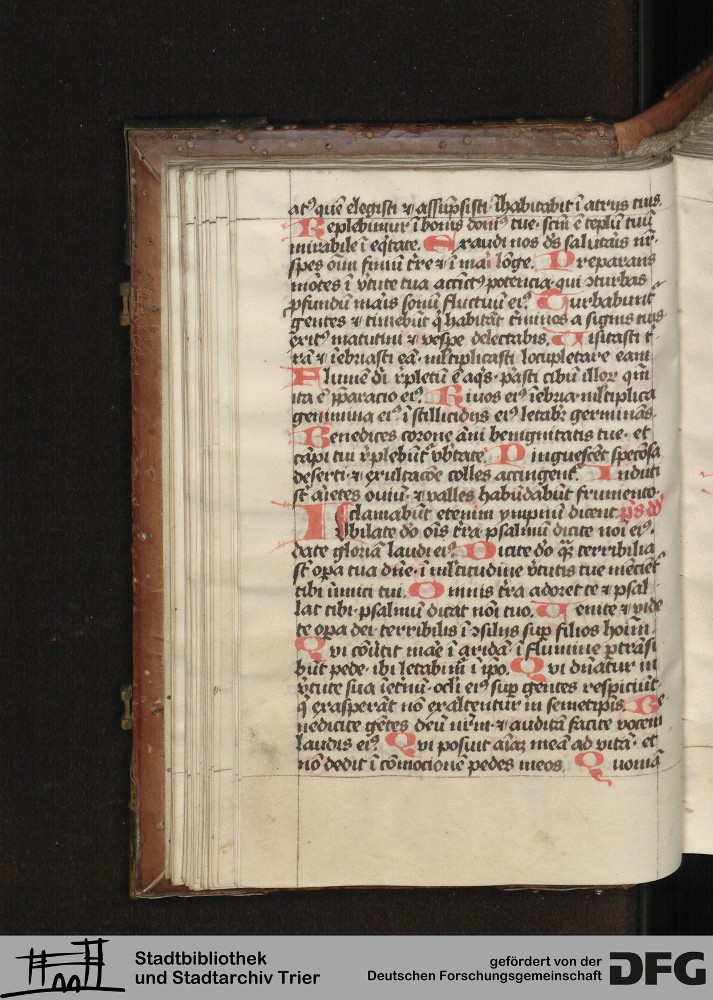 atꝰ quē elegisti ⁊ assūpsisti ihabitabit ī atrijs tuis.
Replebimur ī bonis domꝰ tue· scm̄ ē teplū tuū
mirabile ī eq̄tate. Exaudi nos dš salutaris nr̄·
spes oīm finiū t̄re ⁊ ī mari lōge. Preparans
mōtes ī v̄tute tua accīctꝰ potencia· qui ɔturbas
ꝓfundū maris sonū fluctuū eiꝰ. Turbabunt᷑
gentes ⁊ timebūt q̄ habitāt t̄minos a signis tuis
exitꝰ matutini ⁊ vespe delectabis. Visitasti t̄
rā ⁊ īebriasti eā· ml̄tiplicasti locupletare eam
Flumē di r̄pletū ē aq̄s· pasti cibū illoꝝ qm̄
ita ē p̄paracio eiꝰ. Riuos eiꝰ īebria· ml̄tiplica
genimina eiꝰ ī stillicidijs eiꝰ letabr̄ germinās·
Benedices corone āni benignitatis tue· et
cāpi tui r̄plebūt᷑ vb̄tate. Pinguescēt speciosa
deserti· ⁊ exultacōe colles accingent᷑. Induti
st̄ arietes ouiū· ⁊ valles habūdabūt frumento·
clamabūt etenim ympnū dicent ps dd
Jvbilate dō oīs t̄ra psalmū dicite noī eiꝰ·
date gloriā laudi eiꝰ. Dicite dō q̄ꝫ terribilia
st̄ opa tua dn̄e· ī ml̄titudine v̄tutis tue mēcient᷑
tibi inimici tui. Omnis t̄ra adoret te ⁊ psal
lat tibi· psalmū dicat nōi tuo. Venite ⁊ vide
te opa dei· terribilis ī ɔsilijs sup filios hoīm.
Qvi cōūtit mare ī aridā· ī flumine ptrāsi
būt pede· ibi letabimr̄ ī ipo. Qvi dn̄atur in
v̄tute sua īetnū· ocli eiꝰ sup gentes respiciūt·
q̄ exasperāt nō exaltentur in semetipīs. Be
nedicite gētes deū nr̄m· ⁊ auditā facite vocem
laudis eiꝰ. Qvi posuit aīaꝫ meā ad vitā· et
nō dedit ī cōmocionē pedes meos. Quoniā
Stadtbibliothek
und Stadtarchiv Trier
gefördert von der
Deutschen Forschungsgemeinschaft
DFG